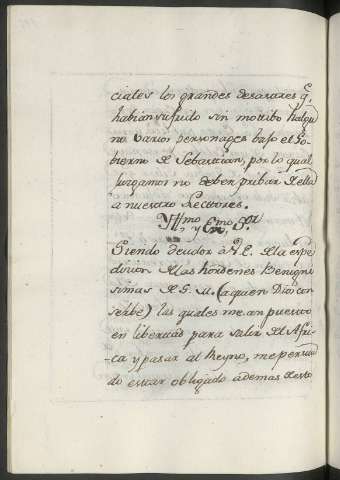 ciales los grandes desaxares q.e
habian sufrido sin motibo halgu
no varios personages bajo el Go-
bierno de Sebastian, por lo qual
jurgamos no deben pribar de ella
a nuestro Lectores.
Yll.mo y Ex.mo S.or
Siendo deudor à V. E. de la espe
dicion de las hordenes Benigni
simas de S. M. (a quien Dios con
serbe) las quales me an puesto
en libertad para salir del Afri-
-ca y pasar al Reyno, me persua
do estar obligado ademas de esto